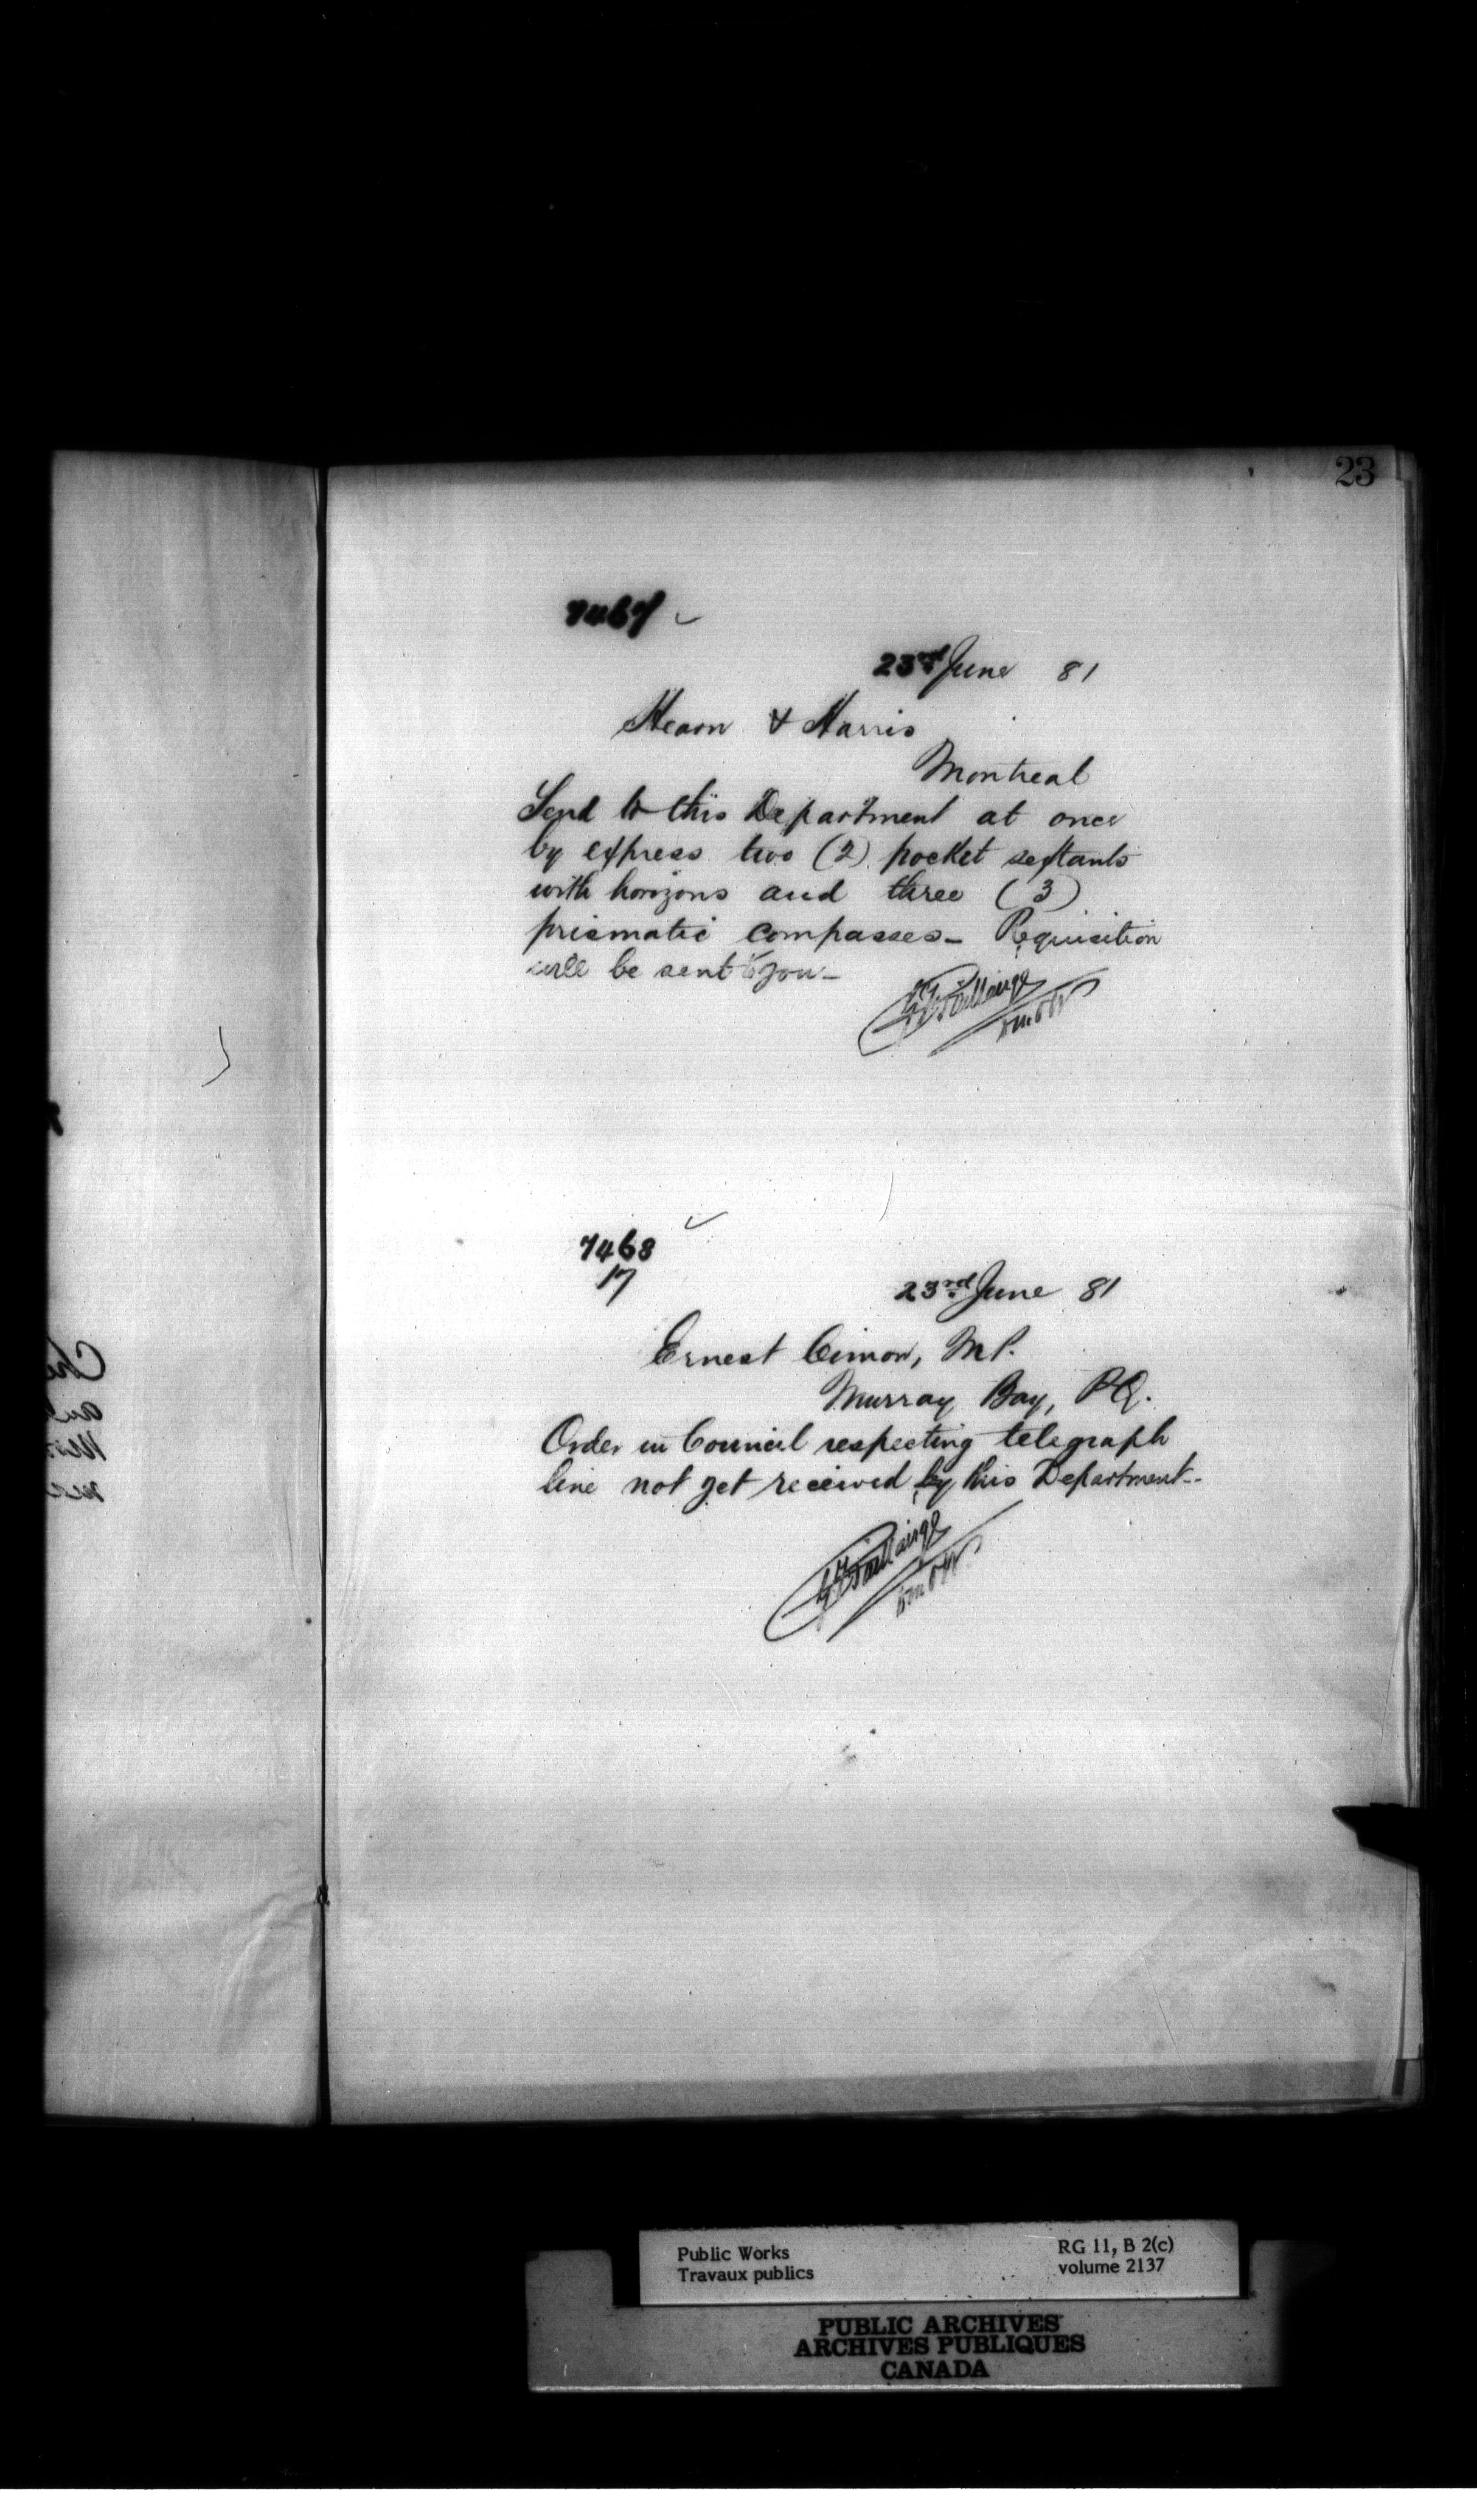 23
7467
23rd June 81
Hearn & Harris
Montreal
Send to this Department at once
by express two (2) pocket sextants
with horizons and three (3)
prismatic compasses - Requisition
will be sent to you -
7468
17
23rd June 81
Ernest Cimon, M.P.
Murray Bay, P.Q.
Order in Council respecting telegraph
line not yet received by this Department -
Public Works
Travaux publics
RG 11, B 2(c)
volume 2137
PUBLIC ARCHIVES
ARCHIVES PUBLIQUES
CANADA